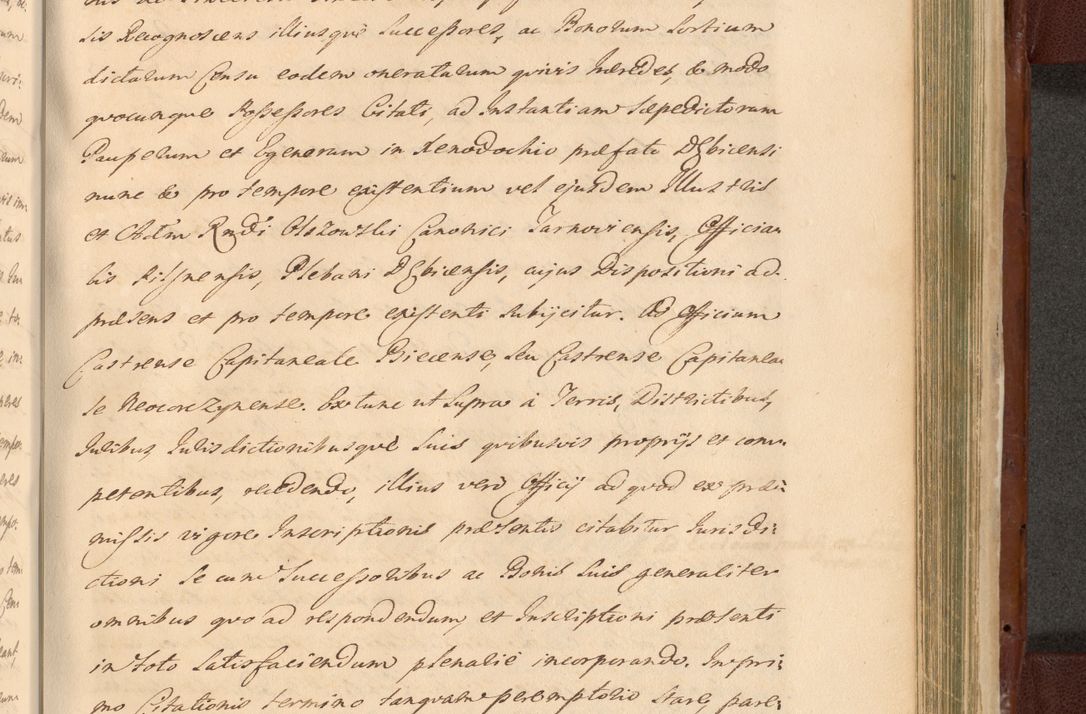 sis Recognoscens illiusque Successores, ac Bonorum Sortium
dictarum Censu eodem oneratarum quivis Hæredes, & modo
quocunque Possessores Citati, ad Instantiam Sæpedictorum
Pauperum et Egenorum in Xenodochio præfato Dębicensi
nunc & pro tempore existentium vel ejusdem Illustris
et Adm Rndi Olszowski Canonici Tarnoviensis, Officia
lis Pilsnensis, Plebani Dębicensis, cujus Dispositioni ad
præsens et pro tempore existenti Subijcitur. Ad Officium
Castrense Capitaneale Biecense, Seu Castrense Capitanea
le Neocorczynense. Extunc ut Supra à Terris, Districtibus,
Juribus, Jurisdictionibusque Suis quibusvis proprijs et com
petentibus, recedendo, illius verò Officij ad quod ex præ:
missis vigore Inscriptionis præsentis citabitur Jurisdi:
ctioni Se cum Successoribus ac Bonis Suis generaliter
omnibus quo ad respondendum, et Inscriptioni præsenti
in toto Satisfaciendum plenariè incorporando. In pri:
mo Citationis termino tanquam peremptorio Stare, pare: